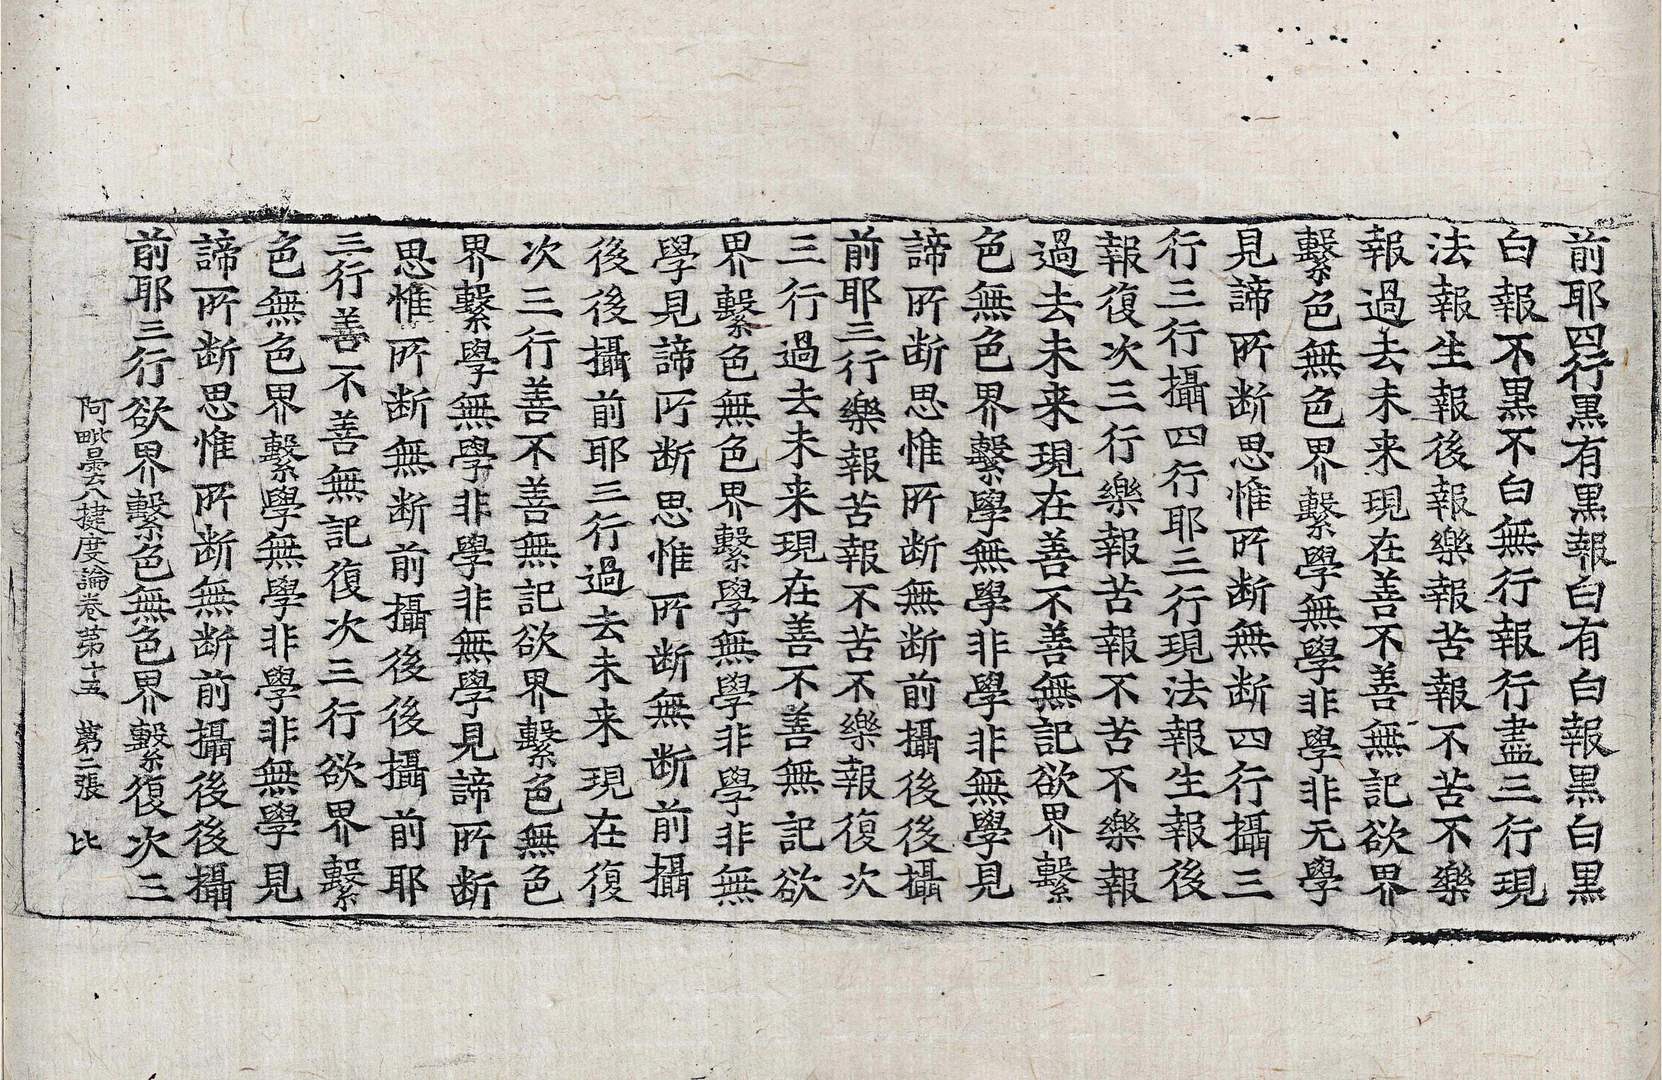 前耶四行黒有黒報白有白報黒白黒
白報不黒不白無行報行盡三行現
法報生報後報樂報苦報不苦不樂
報過去未来現在善不善無記欲界
繫色無色界繫學無學非學非无學
見諦所断思惟所断無断四行攝三
行三行攝四行耶三行現法報生報後
報復次三行樂報苦報不苦不樂報
過去未来現在善不善無記欲界繫
色無色界繫學無學非學非無學見
諦所断思惟所断無断前攝後後攝
前耶三行樂報苦報不苦不樂報復次
三行過去未来現在善不善無記欲
界繫色無色界繫學無學非學非無
學見諦所断思惟所断無断前攝
後後攝前耶三行過去未来現在復
次三行善不善無記欲界繫色無色
界繫學無學非學非無學見諦所断
思惟所断無断前攝後後攝前耶
三行善不善無記復次三行欲界繫
色無色界繫學無學非學非無學見
諦所断思惟所断無断前攝後後攝
前耶三行欲界繫色無色界繫復次三
阿毗曇八揵度論卷第十五 第二張 比